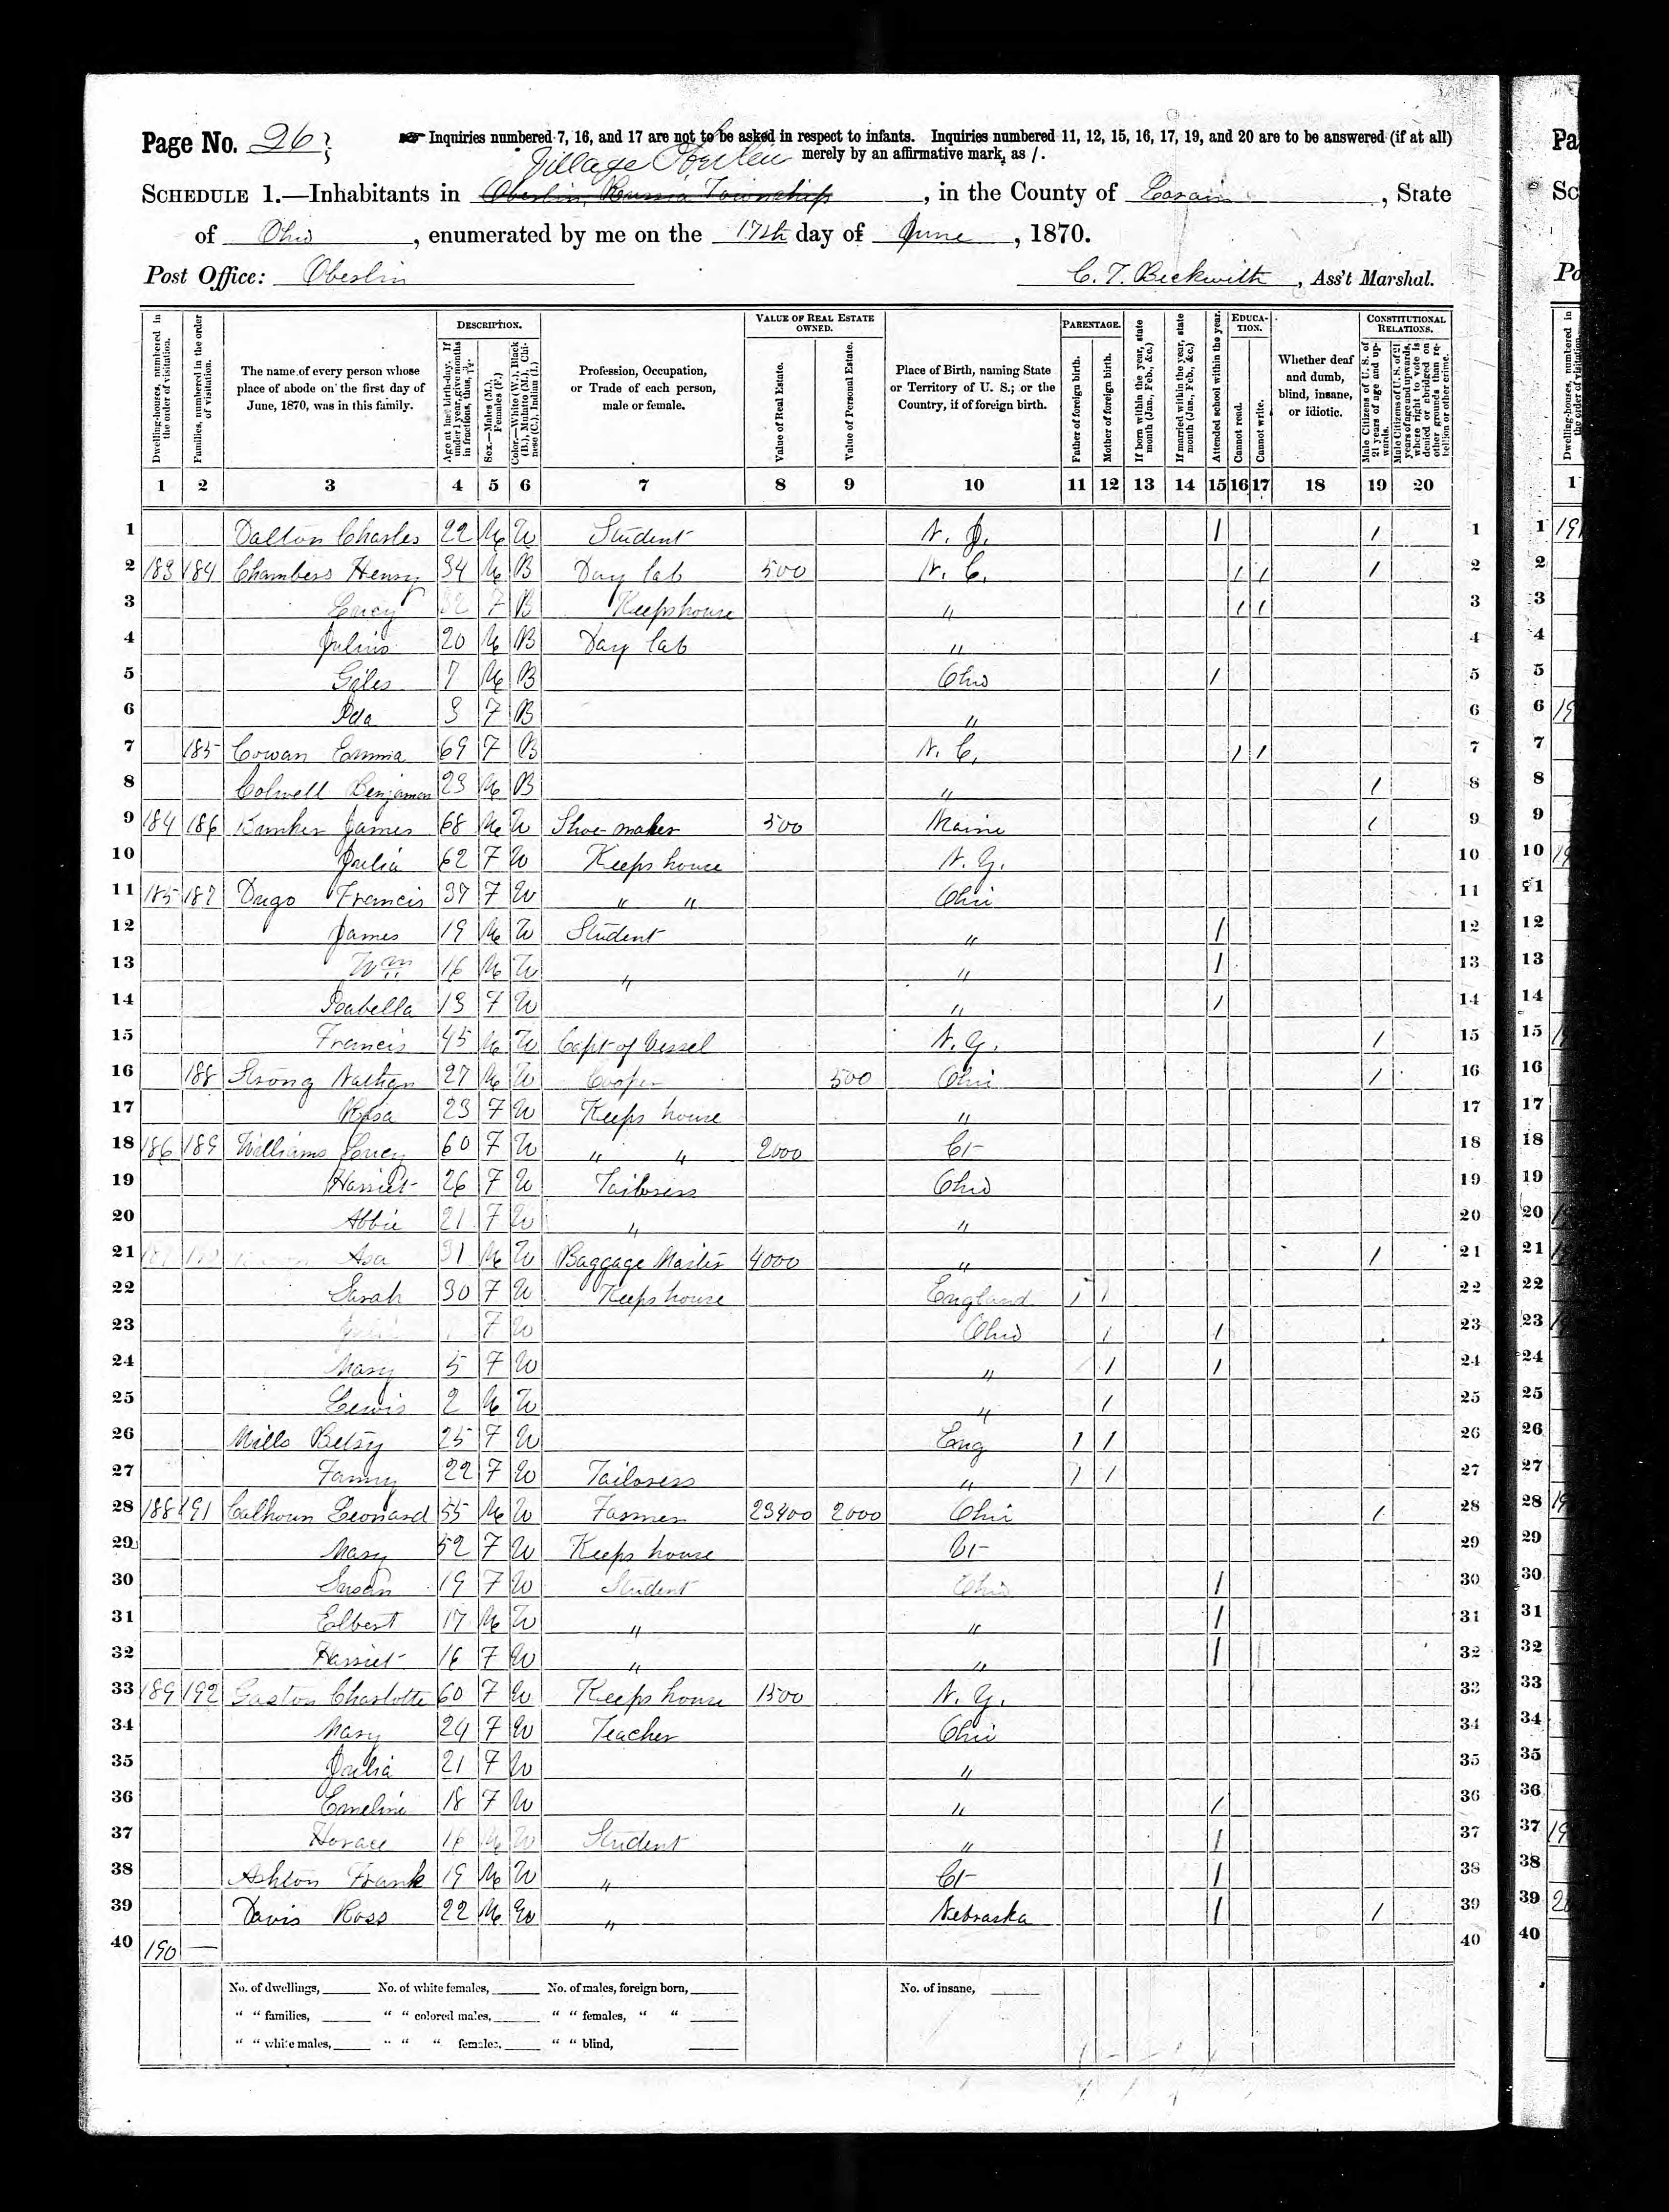 Page No. 26
☞ Inquiries numbered 7, 16, and 17 are not to be asked in respect to infants. Inquiries numbered 11, 12, 15, 16, 17, 19, and 20 are to be answered (if at all)
merely by an affirmative mark, as /.
Village Oberlin
SCHEDULE 1.—Inhabitants in Oberlin, Russia Township, in the County of Lorain, State
of Ohio, enumerated by me on the 17th day of June, 1870.
Post Office: Oberlin C. T. Beckwith, Ass't Marshal.
DESCRIPTION. VALUE OF REAL ESTATE OWNED. PARENTAGE. EDUCATION. CONSTITUTIONAL RELATIONS.
Dwelling-houses, numbered in the order of visitation.
Families, numbered in the order of visitation.
The name of every person whose place of abode on the first day of June, 1870, was in this family.
Age at last birth-day. If under 1 year, give months in fractions, thus, 3/12.
Sex.—Males (M.), Females (F.)
Color.—White (W.), Black (B.), Mulatto (M.), Chinese (C.), Indian (I.)
Profession, Occupation, or Trade of each person, male or female.
Value of Real Estate.
Value of Personal Estate.
Place of Birth, naming State or Territory of U. S.; or the Country, if of foreign birth.
Father of foreign birth.
Mother of foreign birth.
If born within the year, state month (Jan., Feb., &c.)
If married within the year, state month (Jan., Feb., &c.)
Attended school within the year.
Cannot read.
Cannot write.
Whether deaf and dumb, blind, insane, or idiotic.
Male Citizens of U. S. of 21 years of age and upwards.
Male Citizens of U. S. of 21 years of age and upwards, where right to vote is denied or abridged on other grounds than rebellion or other crime.
1 2 3 4 5 6 7 8 9 10 11 12 13 14 15 16 17 18 19 20
1 Dalton Charles 22 M W Student N. J. / / 1
2 183 184 Chambers Henry 34 M B Day lab 500 N. C. / / / 2
3 Lucy 32 F B Keeps house " / / 3
4 Julius 20 M B Day lab " 4
5 Giles 7 M B Ohio / 5
6 Ida 3 F B " 6
7 185 Cowan Emma 69 F B N. C. / / 7
8 Colwell Benjamen 23 M B " / 8
9 184 186 Bunker James 68 M W Shoe maker 500 Maine / 9
10 Julia 62 F W Keeps house N. Y. 10
11 185 187 Drigo Francis 37 F W " " Ohio 11
12 James 19 M W Student " / 12
13 Wm 16 M W " " / 13
14 Isabella 13 F W " / 14
15 Francis 45 M W Capt of Vessel N. Y. / 15
16 188 Strong Nathan 27 M W Cooper 500 Ohio / 16
17 Rosa 23 F W Keeps house " 17
18 186 189 Williams Lucy 60 F W " " 2000 Ct 18
19 Harriet 26 F W Tailoress Ohio 19
20 Abbie 21 F W " " 20
21 Asa 31 M W Baggage Master 4000 " / 21
22 Sarah 30 F W Keeps house England / / 22
23 F W Ohio / / 23
24 Mary 5 F W " / / 24
25 Lewis 2 M W " / 25
26 Mills Betsey 25 F W Eng / / 26
27 Fanny 22 F W Tailoress " / / 27
28 188 191 Calhoun Leonard 55 M W Farmer 23400 2000 Ohio / 28
29 Mary 52 F W Keeps house Vt 29
30 Susan 19 F W Student Ohio / 30
31 Elbert 17 M W " " / 31
32 Harriet 16 F W " " / 32
33 189 192 Gaston Charlotte 60 F W Keeps house 1500 N. Y. 33
34 Mary 24 F W Teacher Ohio 34
35 Julia 21 F W " 35
36 Emeline 18 F W " / 36
37 Horace 16 M W Student " / 37
38 Ashton Frank 19 M W " Ct / 38
39 Davis Ross 22 M W " Nebraska / / 39
40 190 — 40
No. of dwellings, No. of white females, No. of males, foreign born, No. of insane,
" " families, " " colored males, " " females, " "
" " white males, " " " females, " " blind,